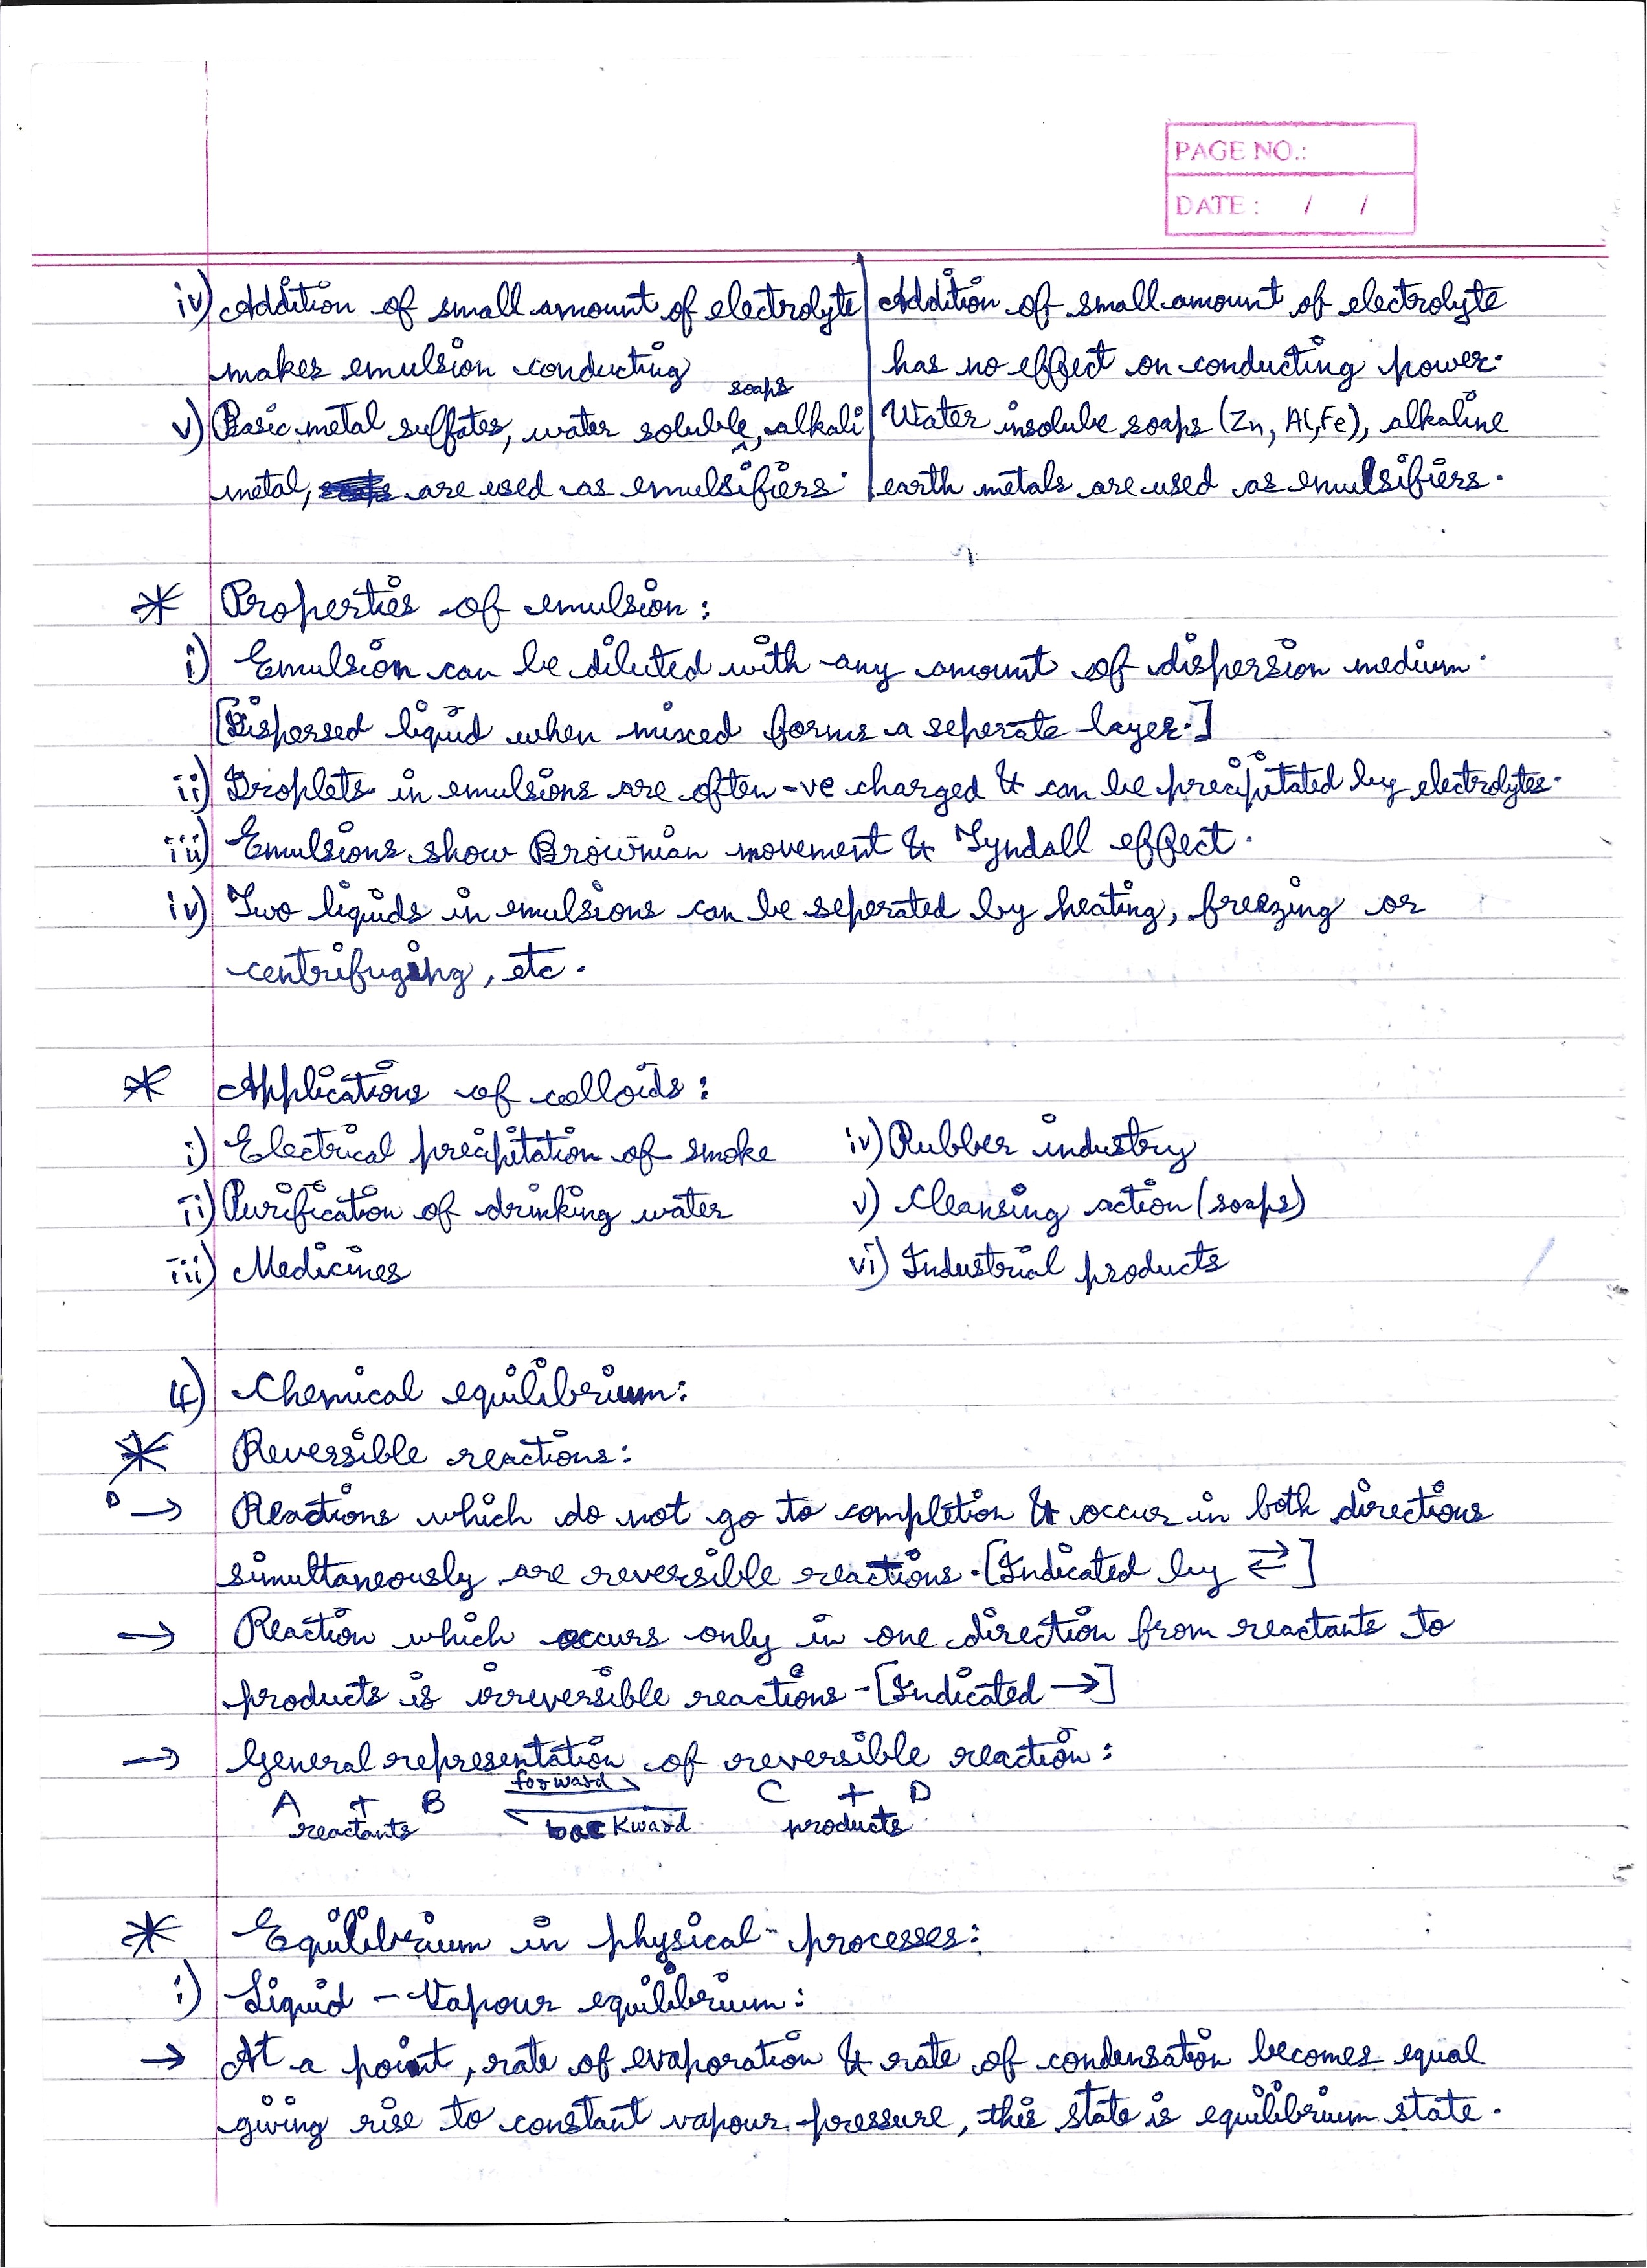 PAGE NO.:
DATE : / /
iv) Addition of small amount of electrolyte | Addition of small amount of electrolyte
makes emulsion conducting | has no effect on conducting power.
soaps
v) Basic metal sulfates, water soluble ^, alkali | Water insolube soaps (Zn, Al, Fe), alkaline
metal, are used as emulsifiers. | earth metals are used as emulsifiers.
* Properties of emulsion :
i) Emulsion can be diluted with any amount of dispersion medium.
[Dispersed liquid when mixed forms a seperate layer.]
ii) Droplets in emulsions are often -ve charged & can be precipitated by electrolytes.
iii) Emulsions show Brownian movement & Tyndall effect.
iv) Two liquids in emulsions can be seperated by heating, freezing or
centrifuging, etc.
* Applications of colloids :
i) Electrical precipitation of smoke iv) Rubber industry
ii) Purification of drinking water v) Cleansing action (soaps)
iii) Medicines vi) Industrial products
4) Chemical equilibrium:
* Reversible reactions:
→ Reactions which do not go to completion & occur in both directions
simultaneously are reversible reactions. [Indicated by ⇄]
→ Reaction which occurs only in one direction from reactants to
products is irreversible reactions - [Indicated →]
→ General representation of reversible reaction :
forward
A + B C + D
reactants backward products
* Equilibrium in physical processes:
i) Liquid - Vapour equilibrium :
→ At a point, rate of evaporation & rate of condensation becomes equal
giving rise to constant vapour pressure, this state is equilibrium state.